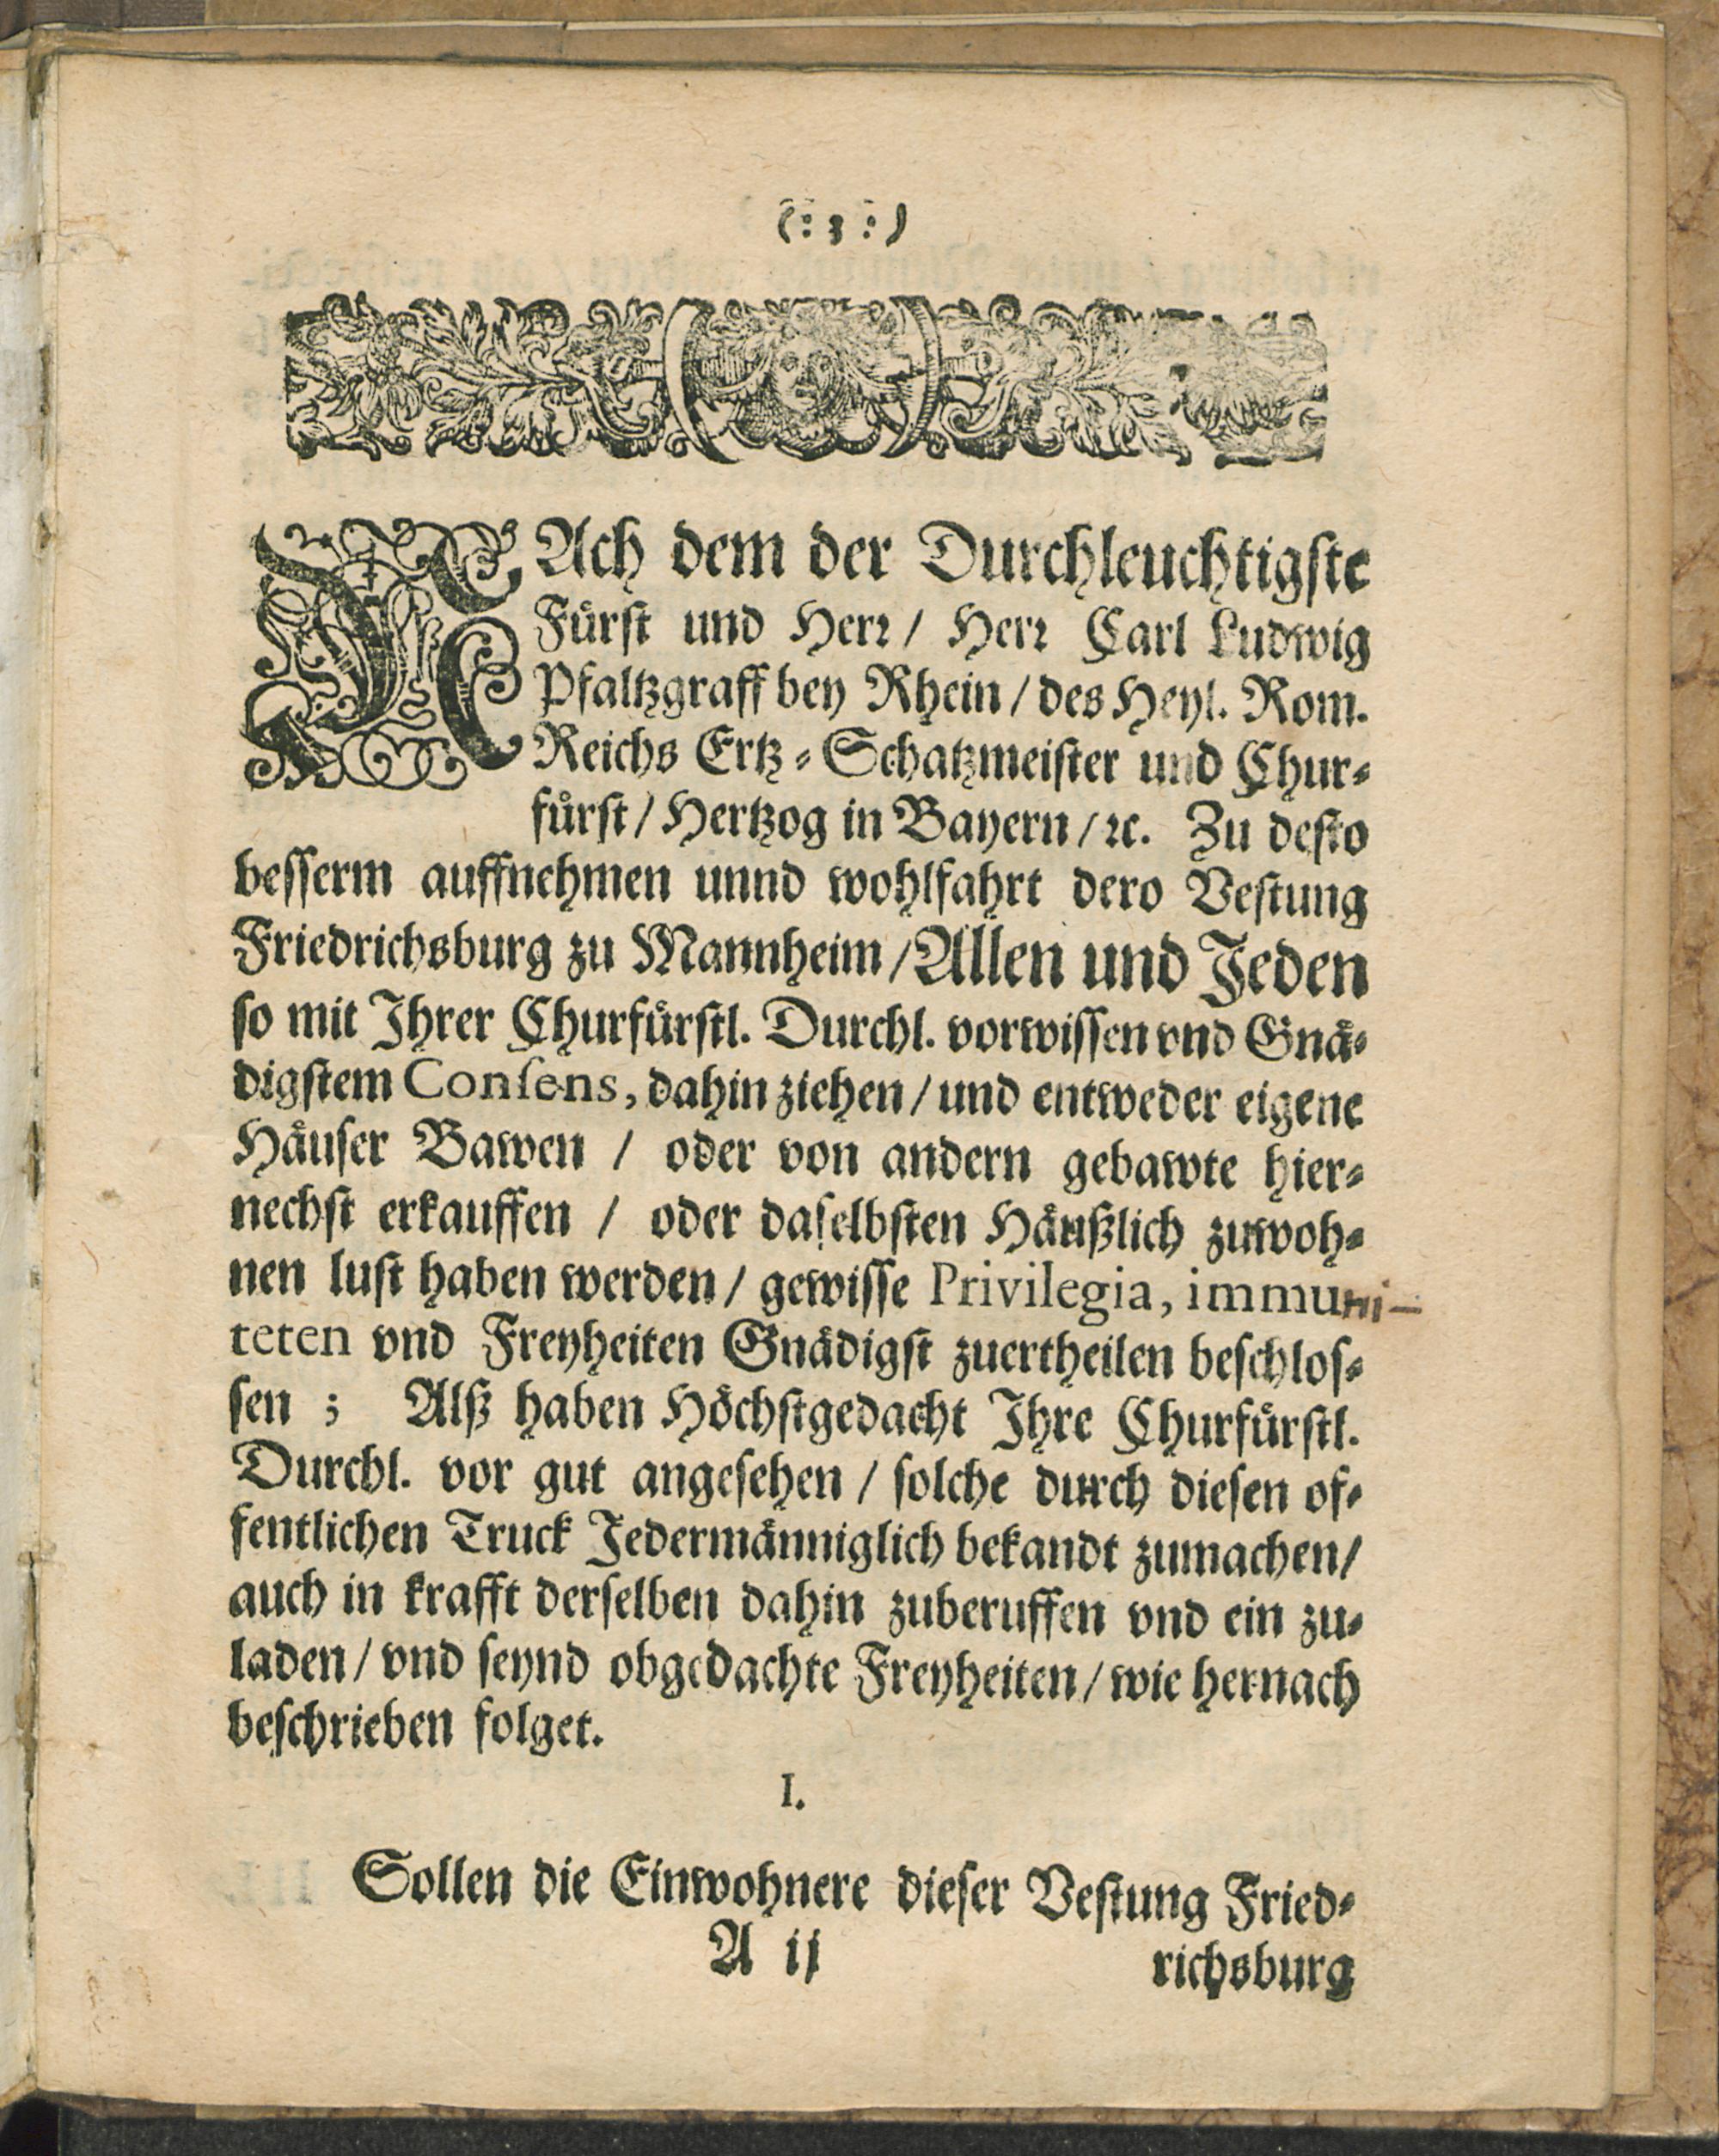 (: 3 :)
NAch dem der Durchleuchtigste
Fürst und Herr / Herr Carl Ludwig
Pfaltzgraff bey Rhein / des Heyl. Rom.
Reichs Ertz-Schatzmeister und Chur-
fürst / Hertzog in Bayern / ꝛc. Zu desto
besserm auffnehmen unnd wohlfahrt dero Vestung
Friedrichsburg zu Mannheim / Allen und Jeden
so mit Ihrer Churfürstl. Durchl. vorwissen vnd Gnä-
digstem Consens, dahin ziehen / und entweder eigene
Häuser Bawen / oder von andern gebawte hier-
nechst erkauffen / oder daselbsten Häußlich zuwoh-
nen lust haben werden / gewisse Privilegia, immuni-
teten vnd Freyheiten Gnädigst zuertheilen beschlos-
sen ; Alß haben Höchstgedacht Ihre Churfürstl.
Durchl. vor gut angesehen / solche durch diesen of-
fentlichen Truck Jedermänniglich bekandt zumachen /
auch in krafft derselben dahin zuberuffen vnd ein zu-
laden / vnd seynd obgedachte Freyheiten / wie hernach
beschrieben folget.
I.
Sollen die Einwohnere dieser Vestung Fried-
A ij richsburg